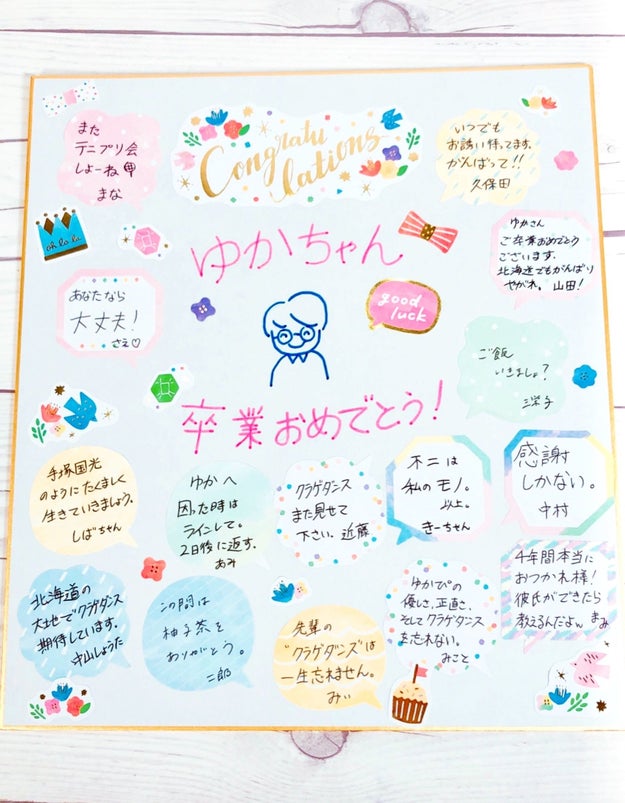 また
テニプリ会
しよーね
まな
Congratu
lations
いつでも
お誘い待ってます。
がんばって!!
久保田
oh la la
ゆかちゃん
good
luck
ゆかさん
ご卒業おめでとう
ございます。
北海道でもがんばり
やがれ。山田!
あなたなら
大丈夫!
さえ♡
ご飯
いきましょ?
卒業おめでとう!
手塚国光
のようにたくましく
生きていきましょう。
しばちゃん
ゆかへ
困った時は
ラインして。
2日後に返す。
あみ
クラゲダンス
また見せて
下さい。近藤
不二は
私のモノ。
以上。
きーちゃん
感謝
しかない。
中村
北海道の
大地でクラゲダンス
期待しています。
中山しょうた
この間は
柚子茶を
ありがとう。
二郎
先輩の
"クラゲダンス"は
一生忘れません。
みぃ
ゆかぴの
優しさ、正直さ、
そしてクラゲダンス
を忘れない。
みこと
4年間本当に
おつかれ様!
彼氏ができたら
教えるんだよん まみ